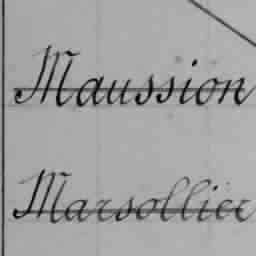 Maussion
Marsollier